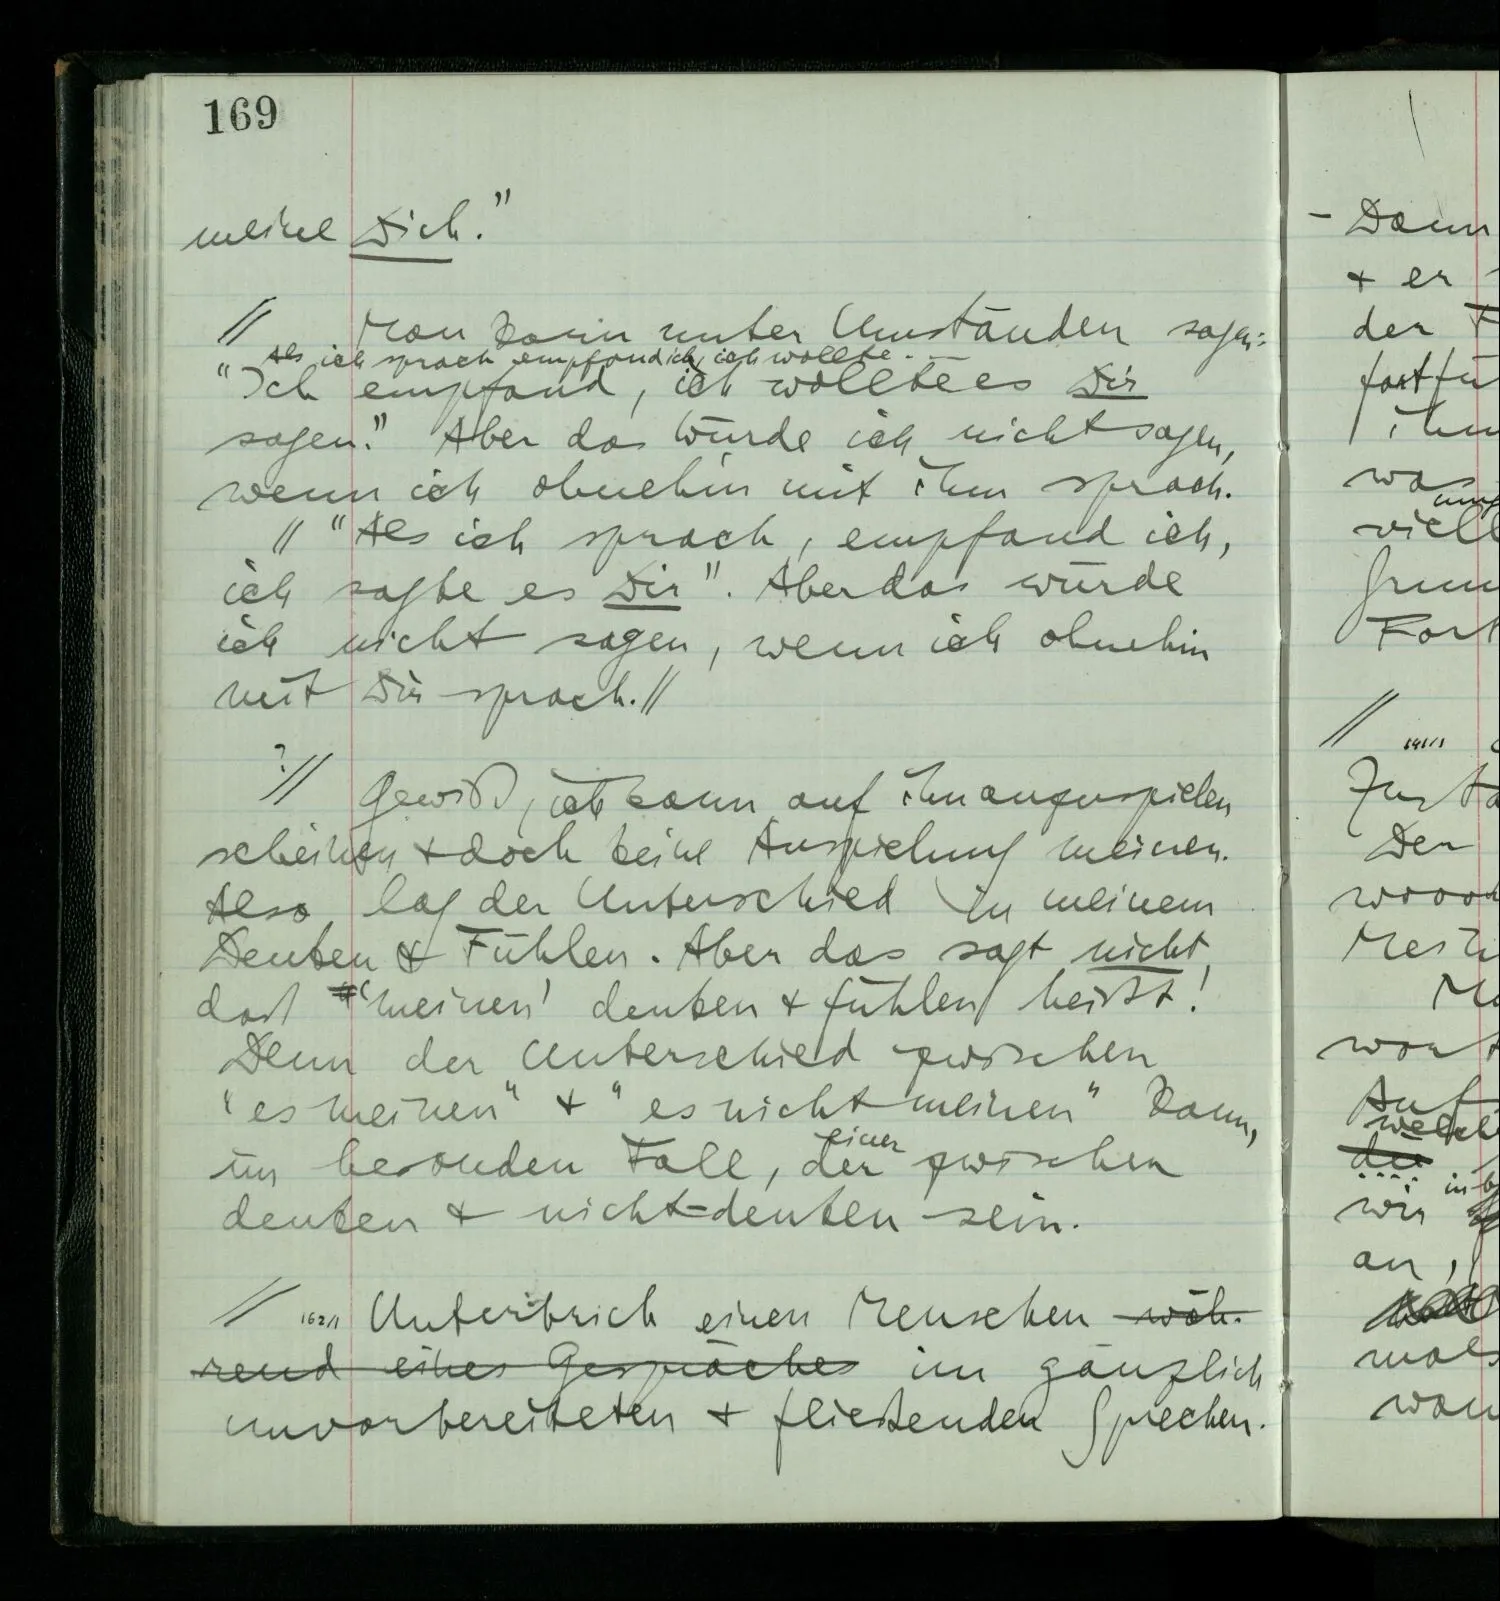 169
meine Dich."
// Man kann unter Umständen sagen:
Als ich sprach empfand ich, ich wollte...
"Ich empfand, ich wollte es Dir
sagen." Aber das würde ich nicht sagen,
wenn ich ohnehin mit ihm sprach.
// "Als ich sprach, empfand ich,
ich sagte es Dir". Aber das würde
ich nicht sagen, wenn ich ohnehin
mit Dir sprach. //
?// Gewiß, ich kann auf ihn anzuspielen
scheinen + doch keine Anspielung meinen.
Also lag der Unterschied in meinem
Denken & Fühlen. Aber das sagt nicht,
daß 'meinen' denken + fühlen heißt!
Denn der Unterschied zwischen
"es meinen" + "es nicht meinen" kann,
im besonden Fall, der zwischen
einer
denken + nicht-denken sein.
// 162/1 Unterbrich einen Menschen wäh-
rend eines Gespräches im gänzlich
unvorbereiteten + fließenden Sprechen.
- Dann
+ er
der
fortfü
ihm
was
viell
Fort
//
Zusta
Der
Mein
wort
Auf
welche
die
wir
an,